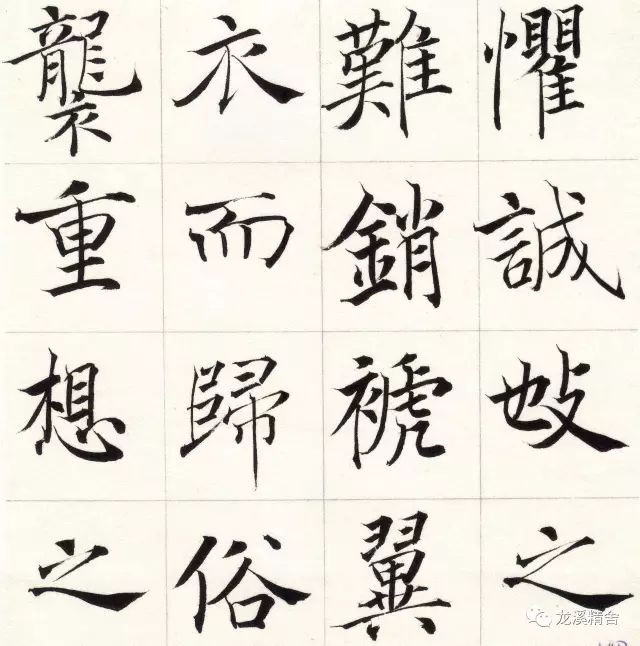 懼誠之
難銷褫翼
衣而歸俗
襲重想之
龙溪精舍